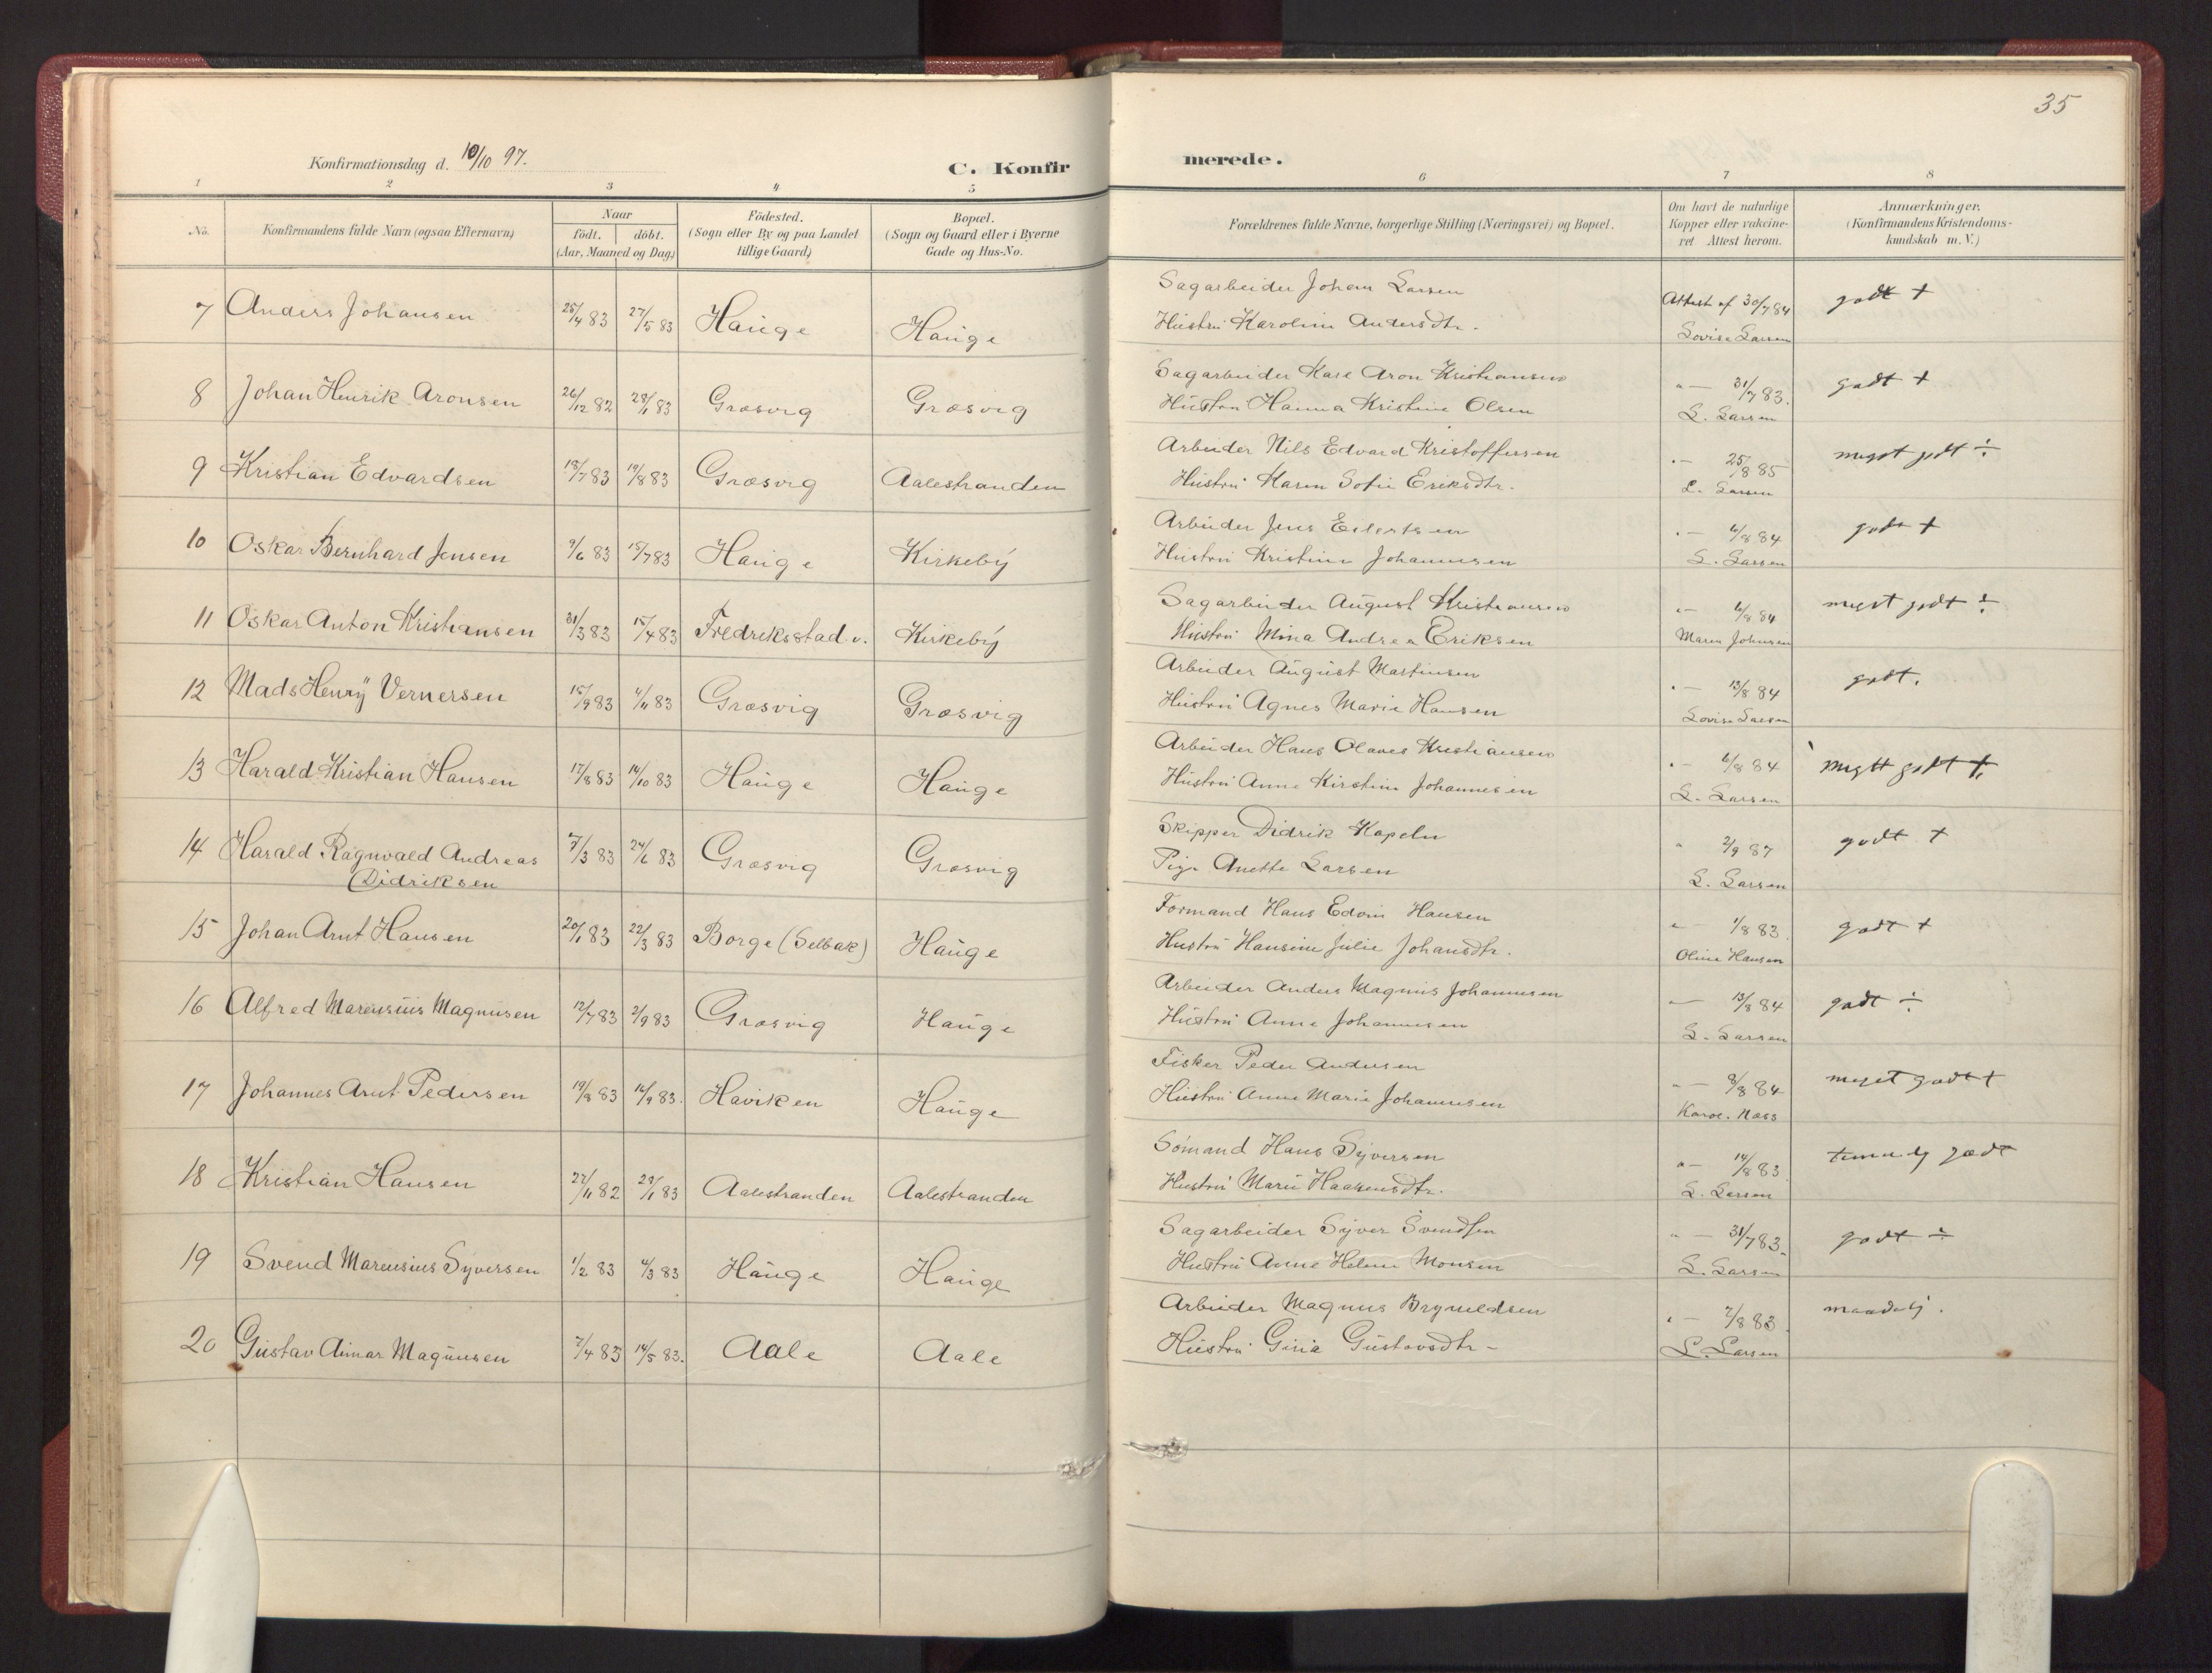 35
Konfirmationsdag d. 10/10 97.
C. Konfirmerede.
1 2 3 4 5 6 7 8
No.
Konfirmandens fulde Navn (ogsaa Efternavn)
Naar
født. døbt.
(Aar, Maaned og Dag)
Födested.
(Sogn eller By og paa Landet
tillige Gaard)
Bopæl.
(Sogn og Gaard eller i Byerne
Gade og Hus-No.
Forældrenes fulde Navne, borgerlige Stilling (Næringsvei) og Bopæl.
Om havt de naturlige
Kopper eller vakcine-
ret Attest herom.
Anmærkninger.
(Konfirmandens Kristendoms-
kundskab m. V.)
7 Anders Johansen 25/4 83 27/5 83 Hauge Hauge
Sagarbeider Johan Larsen
Hustru Karoline Andersdtr.
Attest af 30/7 84
Lovise Larsen
godt +
8 Johan Henrik Aronsen 26/12 82 28/1 83 Græsvig Græsvig
Sagarbeider Karl Aron Kristiansen
Hustru Hanna Kristine Olsen
" — 31/7 83.
L. Larsen
godt +
9 Kristian Edvardsen 18/7 83 19/8 83 Græsvig Aalestranden
Arbeider Nils Edvard Kristoffersen
Hustru Maren Sofie Eriksdtr.
" — 25/8 85
L. Larsen
meget godt ÷
10 Oskar Bernhard Jensen 9/6 83 15/7 83 Hauge Kirkeby
Arbeider Jens Eilertsen
Hustru Kristine Johannesen
" — 6/8 84
L. Larsen
godt +
11 Oskar Anton Kristiansen 31/3 83 15/4 83 Fredriksstad v. Kirkeby
Sagarbeider August Kristiansen
Hustru Mina Andrea Eriksen
" — 6/8 84
Maren Johnsen
meget godt ÷
12 Mads Henry Vernersen 15/9 83 4/11 83 Græsvig Græsvig
Arbeider August Martinsen
Hustru Agnes Marie Hansen
" — 13/8 84
Lovise Larsen
godt.
13 Harald Kristian Hansen 17/8 83 14/10 83 Hauge Hauge
Arbeider Hans Olaves Kristiansen
Hustru Anne Kirstine Johannesen
" — 6/8 84
L. Larsen
meget godt +
14 Harald Ragnvald Andreas
Didriksen 7/3 83 24/6 83 Græsvig Græsvig
Skipper Didrik Kapeln
Pige Anette Larsen
" 2/9 87
L. Larsen
godt +
15 Johan Arnt Hansen 20/1 83 22/3 83 Borge (Selbak) Hauge
Formand Hans Edvin Hansen
Hustru Hansine Julie Johansdtr.
" — 1/8 83
Oline Hansen
godt +
16 Alfred Marensius Magnusen 12/7 83 2/9 83 Græsvig Hauge
Arbeider Anders Magnus Johannesen
Hustru Anne Johannesen
— 13/8 84
L. Larsen
godt ÷
17 Johannes Arnt Pedersen 19/8 83 14/9 83. Haviken Hauge
Fisker Peder Andersen
Hustru Anne Marie Johannesen
" — 8/8 84
Karol. Næss
meget godt +
18 Kristian Hansen 27/11 82 28/1 83 Aalestranden Aalestranden
Sømand Hans Syversen
Hustru Marie Haakensdtr.
" — 14/8 83
L. Larsen
temmelig godt
19 Svend Marensius Syversen 1/2 83 4/3 83 Hauge Hauge
Sagarbeider Syver Svendsen
Hustru Anne Helene Monsen
" — 31/7 83.
L. Larsen
godt ÷
20 Gustav Aimar Magnusen 7/4 83 14/5 83. Aale Aale
Arbeider Magnus Bryneldsen
Hustru Gina Gustavsdtr -
" — 7/8 83
L. Larsen
maadelig.